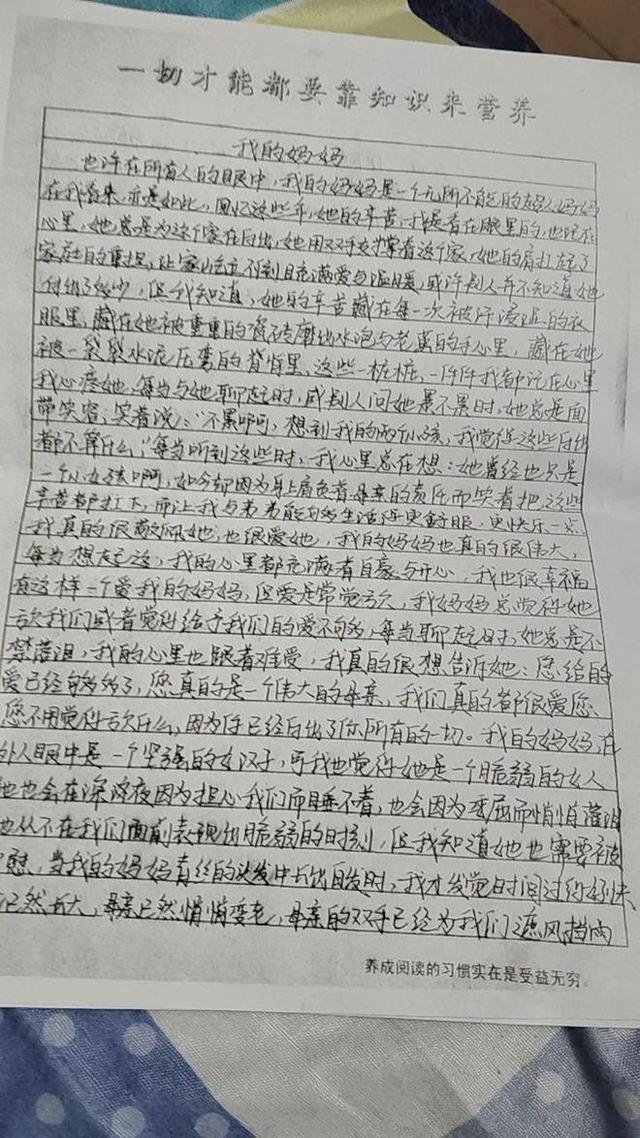 一切才能都要靠知识来营养
我的妈妈
也许在所有人的眼中，我的妈妈是一个无所不能的超人妈妈
在我看来，亦是如此，回忆这些年，她的辛苦，我是看在眼里的，也记在
心里，她总是为这个家在付出，她用双手支撑着这个家，她的肩扛起了
家庭的重担，让家庭充满爱与温暖，或许别人并不知道她
付出了多少，但我知道，她的辛苦藏在每一次被汗浸湿的衣
服里，藏在她被重重的瓷砖磨出水泡与老茧的手心里，藏在她
被一袋袋水泥压弯的脊背里，这些一桩桩，一件件我都记在心里
我心疼她，每当与她聊起时，或别人问她累不累时，她总是面
带笑容，笑着说：“不累啊，想到我的两个小孩，我觉得这些付出
都不算什么”每当听到这些时，我心里总在想：她曾经也只是
一个小女孩啊，如今却因为身上肩负着母亲的责任而笑着把这些
辛苦都扛下，而让我与弟弟能够生活得更舒服，更快乐一点
我真的很敬佩她，也很爱她，我的妈妈也真的很伟大，
每当想起这，我的心里都充满着自豪与开心，我也很幸福
有这样一个爱我的妈妈，但爱是常觉亏欠，我妈妈总觉得她
亏欠我们或者觉得给予我们的爱不够，每当聊起时，她总是不
禁落泪，我的心里也跟着难受，我真的很想告诉她：您给的
爱已经够多了，您真的是一个伟大的母亲，我们真的都很爱您、
您不用觉得亏欠什么，因为你已经付出了你所有的一切。我的妈妈，在
外人眼中是一个坚强的女汉子，可我也觉得她是一个脆弱的女人
她也会在深夜因为担心我们而睡不着，也会因为委屈而悄悄落泪
她从不在我们面前表现出脆弱的时刻，但我知道她也需要被
慰，当我的妈妈青丝的头发中长出白发时，我才发觉时间过得好快
已然长大，母亲已然悄悄变老，母亲的双手已经为我们遮风挡雨
养成阅读的习惯实在是受益无穷。